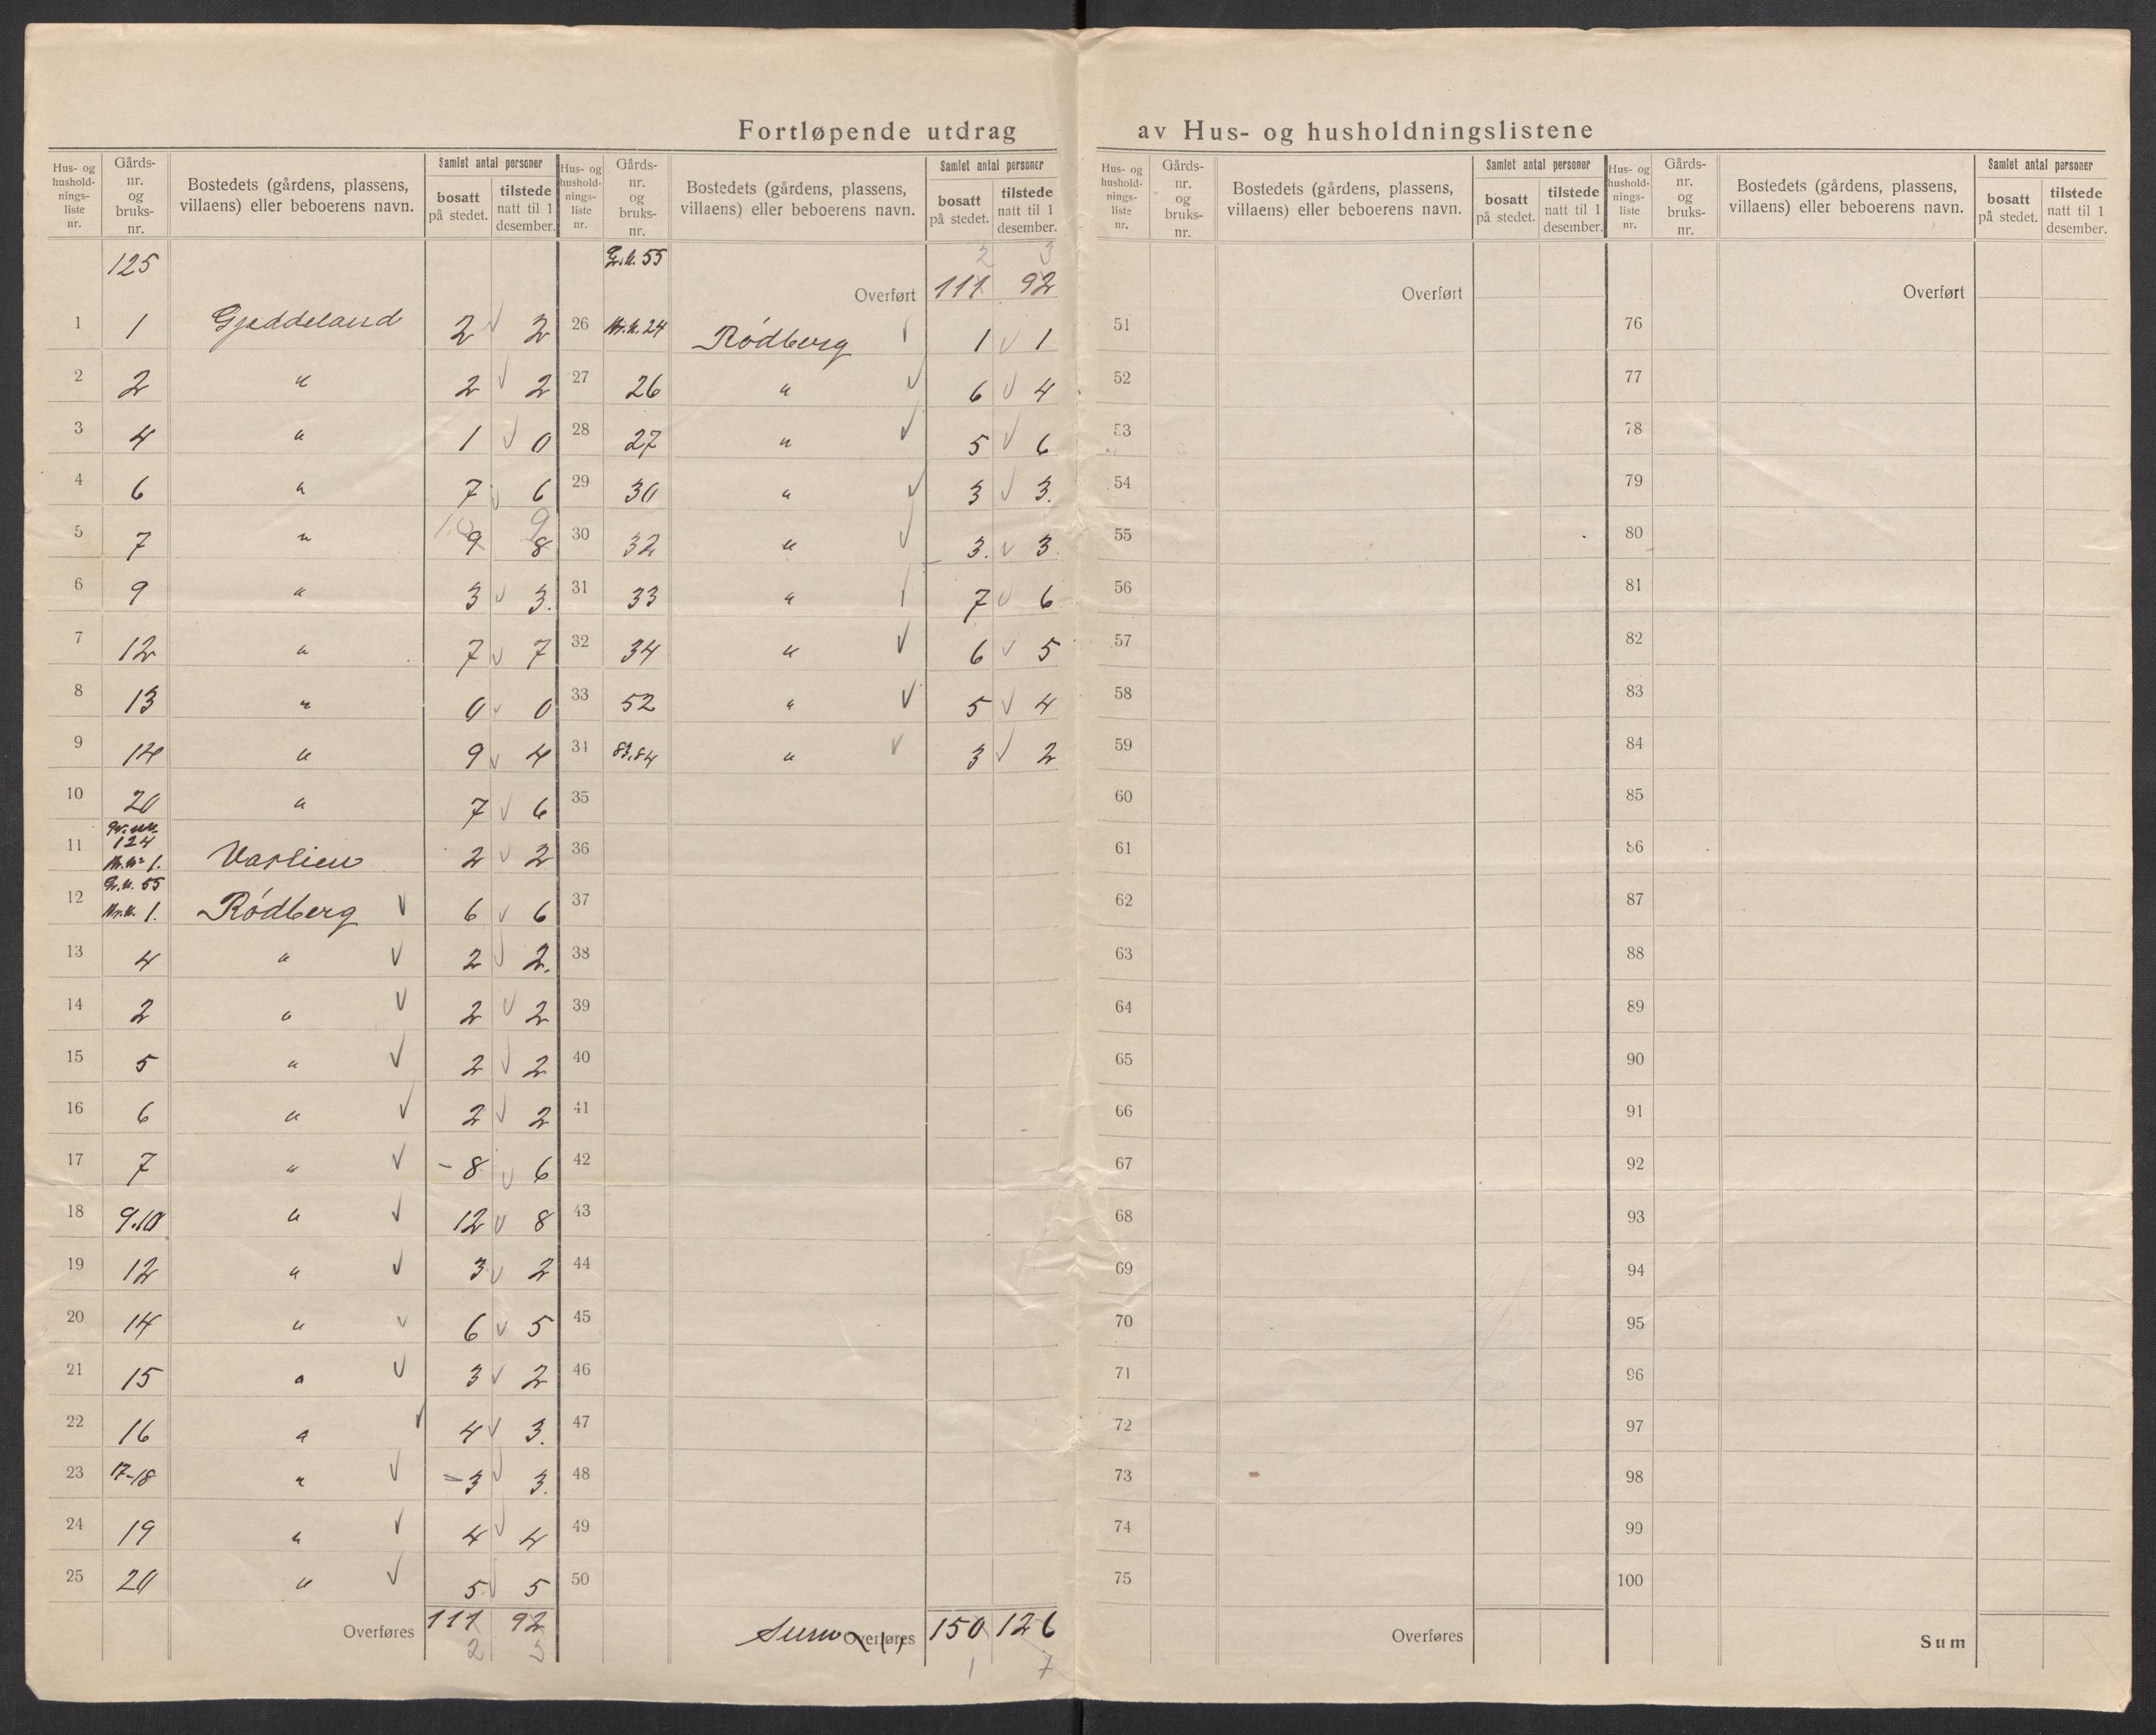 Fortløpende utdrag av Hus- og husholdningslistene
Hus- og hushold-nings-liste nr. | Gårds-nr. og bruks-nr. | Bostedets (gårdens, plassens, villaens) eller beboerens navn. | Samlet antal personer | bosatt på stedet. | tilstede natt til 1 desember.
125
1 | 1 | Gjeddeland | 2 | 2
2 | 2 | " | 2 | 2
3 | 4 | " | 1 | 0
4 | 6 | " | 7 | 6
5 | 7 | " | 10 9 | 9 8
6 | 9 | " | 3 | 3.
7 | 12 | " | 7 | 7
8 | 13 | " | 0 | 0
9 | 14 | " | 9 | 4
10 | 20 | " | 7 | 6
11 | Gr. nr. 124 Br. nr 1. | Varlien | 2 | 2
12 | G.n. 55 Br.n. 1. | Rødberg | 6 | 6
13 | 4 | " | 2 | 2.
14 | 2 | " | 2 | 2
15 | 5 | " | 2 | 2
16 | 6 | " | 2 | 2
17 | 7 | " | - 8 | 6
18 | 9.10 | " | 12 | 8
19 | 12 | " | 3 | 2
20 | 14 | " | 6 | 5
21 | 15 | " | 3 | 2
22 | 16 | " | 4 | 3.
23 | 17-18 | " | - 3 | 3.
24 | 19 | " | 4 | 4
25 | 20 | " | 5 | 5
Overføres | 111 | 92
2 | 3
Hus- og hushold-nings-liste nr. | Gårds-nr. og bruks-nr. | Bostedets (gårdens, plassens, villaens) eller beboerens navn. | Samlet antal personer | bosatt på stedet. | tilstede natt til 1 desember.
G.n. 55 | 2 | 3
Overført | 111 | 92
26 | Br.n. 24 | Rødberg | 1 | 1
27 | 26 | " | 6 | 4
28 | 27 | " | 5 | 6
29 | 30 | " | 3 | 3.
30 | 32 | " | 3. | 3.
31 | 33 | " | 7 | 6
32 | 34 | " | 6 | 5
33 | 52 | " | 5 | 4
34 | 83.84 | " | 3 | 2
35
36
37
38
39
40
41
42
43
44
45
46
47
48
49
50
Sum Overføres | 150 | 126
1 | 7
Hus- og hushold-nings-liste nr. | Gårds-nr. og bruks-nr. | Bostedets (gårdens, plassens, villaens) eller beboerens navn. | Samlet antal personer | bosatt på stedet. | tilstede natt til 1 desember.
Overført
51
52
53
54
55
56
57
58
59
60
61
62
63
64
65
66
67
68
69
70
71
72
73
74
75
Overføres
Hus- og hushold-nings-liste nr. | Gårds-nr. og bruks-nr. | Bostedets (gårdens, plassens, villaens) eller beboerens navn. | Samlet antal personer | bosatt på stedet. | tilstede natt til 1 desember.
Overført
76
77
78
79
80
81
82
83
84
85
86
87
88
89
90
91
92
93
94
95
96
97
98
99
100
Sum